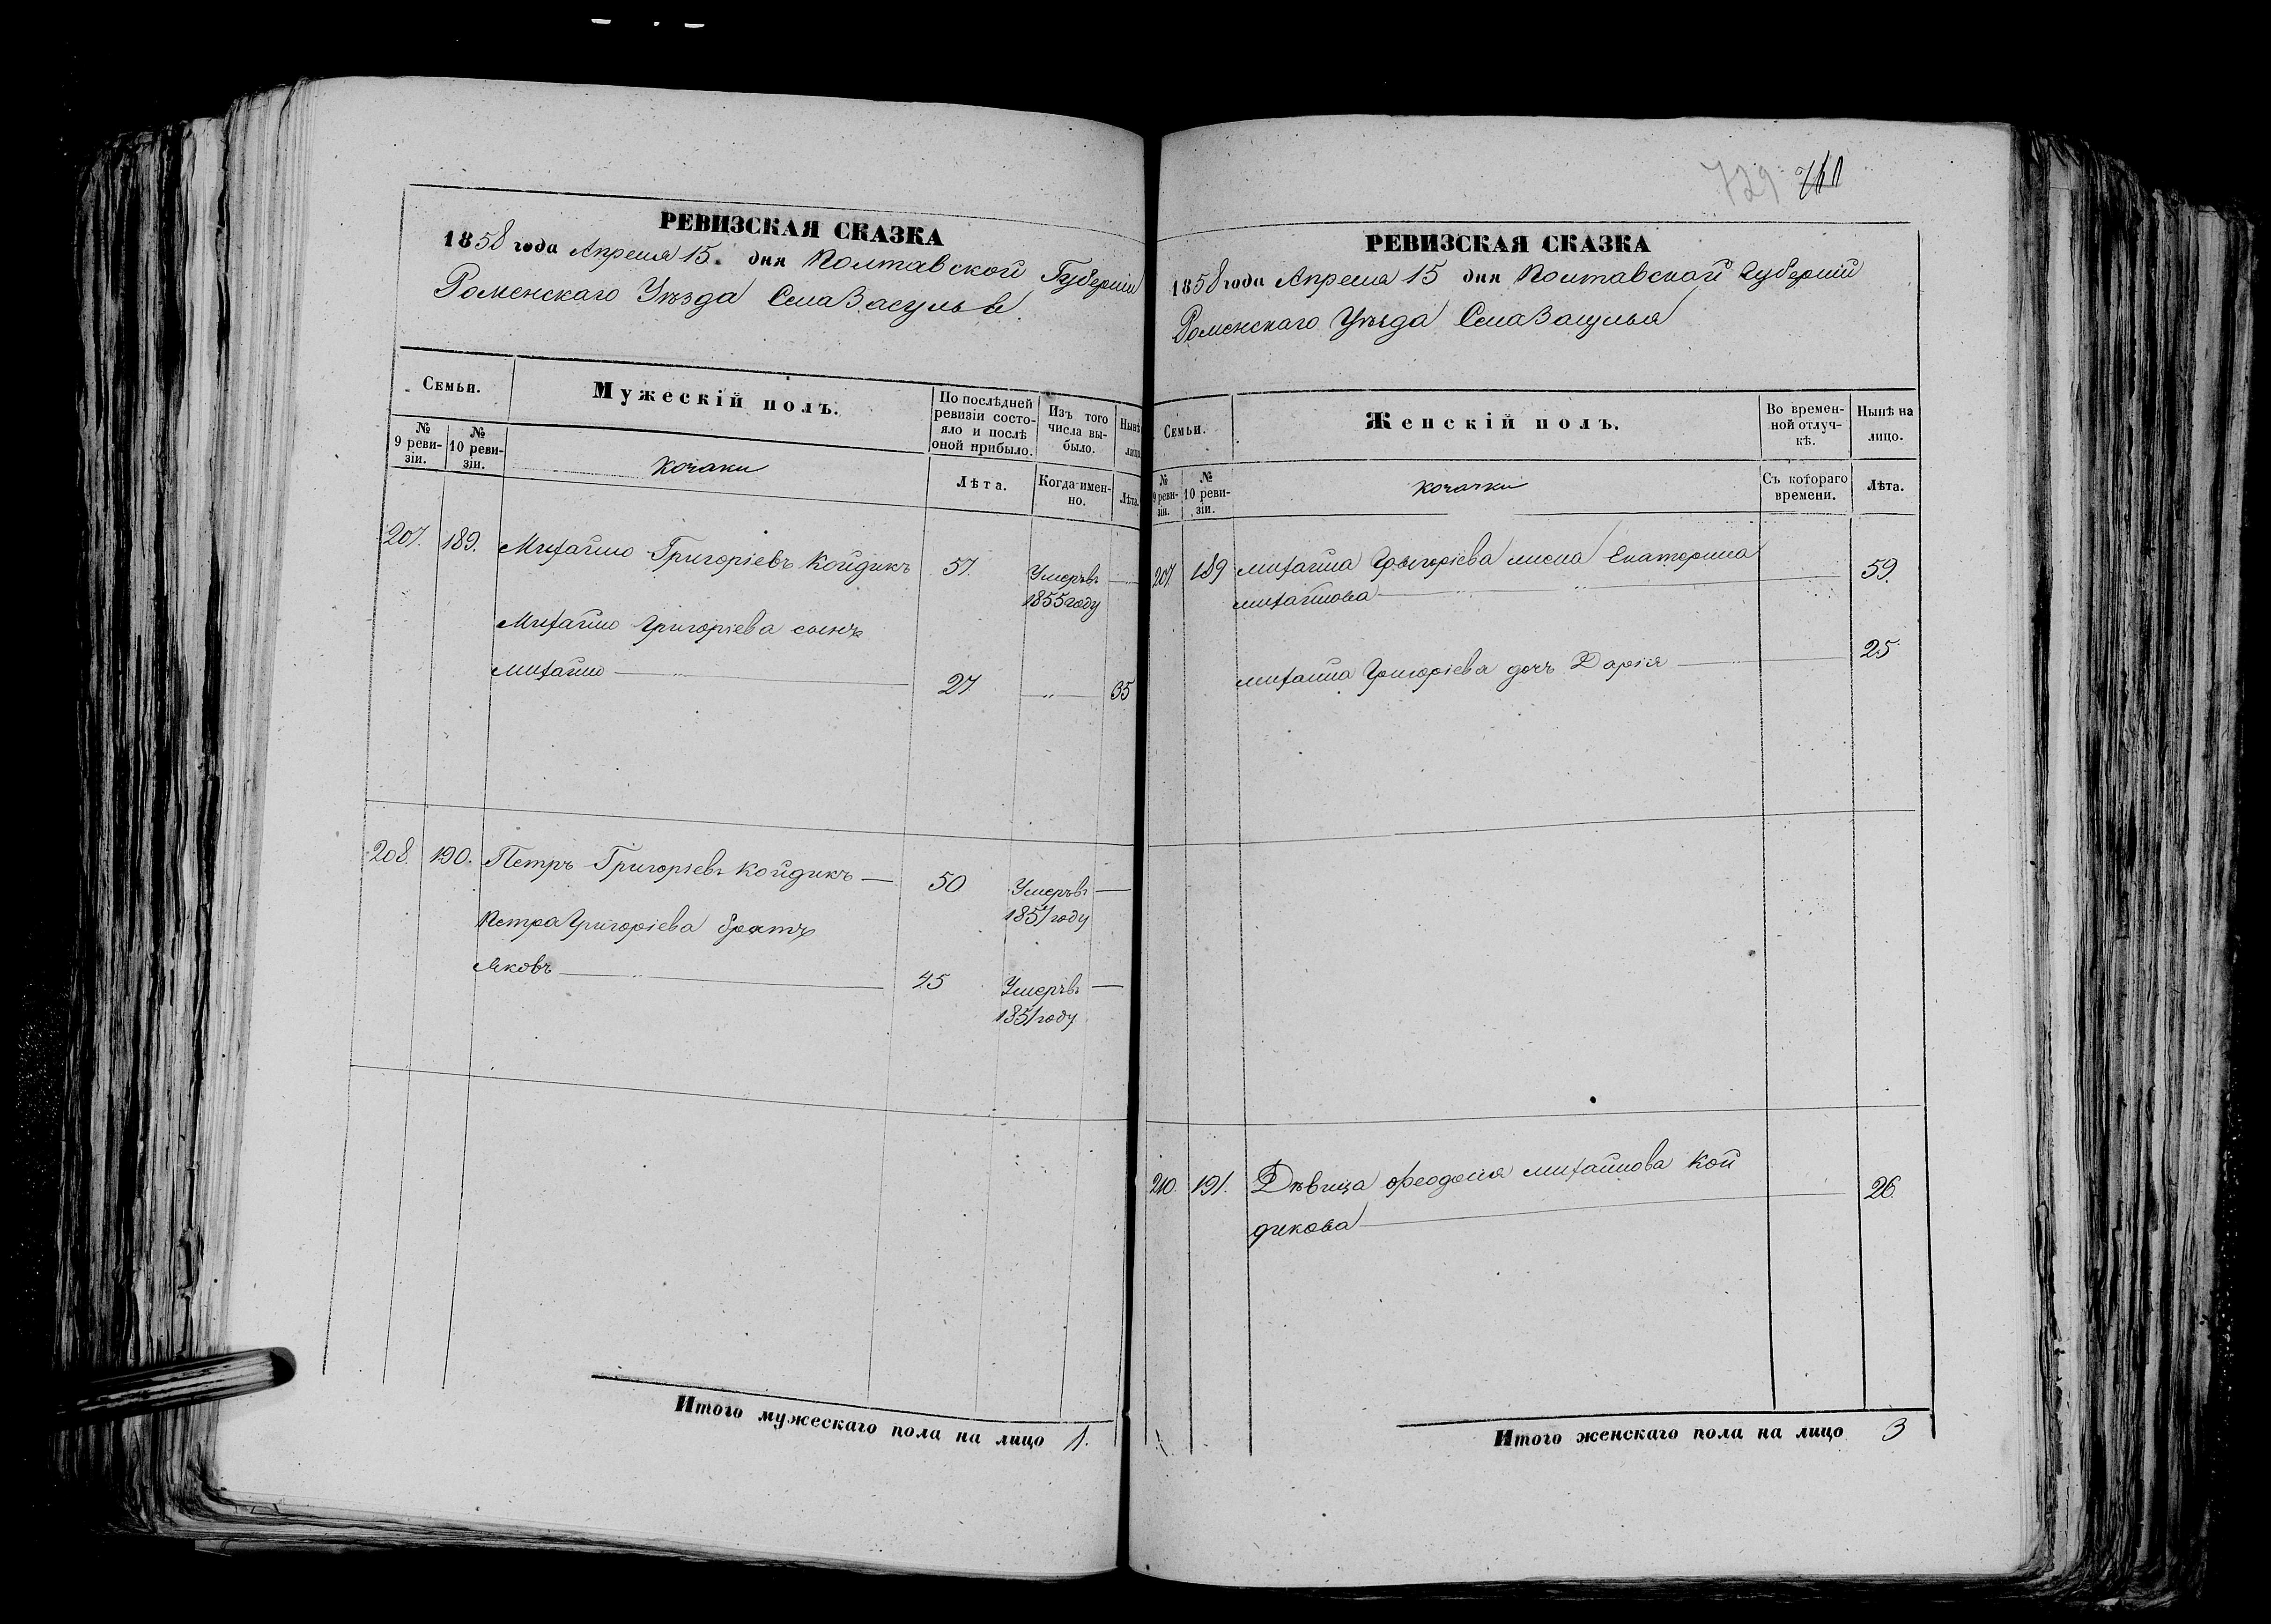 РЕВИЗСКАЯ СКАЗКА
1858 года Апреля 15. дня Полтавской Губерніи
Роменскаго Уѣзда Села Засулья
Семьи.
Мужескій полъ.
По послѣдней ревизіи состояло и послѣ оной прибыло.
Изъ того числа выбыло.
Нынѣ лицо
№ 9 ревизіи.
№ 10 ревизіи.
Козаки
Лѣта.
Когда именно.
Лѣта.
207. 189. Михайло Григоріевъ Койдикъ 57. Умеръ въ
1855 году
Михайло Григоріева сынъ
Михайло 27. " 35
208. 190. Петръ Григоріевъ Койдикъ 50 Умеръ въ
1851 году
Петра Григоріева братъ
Яковъ 45 Умеръ въ
1851 году
Итого мужескаго пола на лицо 1.
729
РЕВИЗСКАЯ СКАЗКА
1858 года Апреля 15 дня Полтавской Губерніи
Роменскаго Уѣзда Села Засулья
Семьи.
Женскій полъ.
Во временной отлучкѣ.
Нынѣ на лицо.
№ 9 ревизіи.
№ 10 ревизіи.
Козачки
Съ котораго времени.
Лѣта.
207. 189 Михайла Григоріева жена Екатерина
Михайлова 59.
Михайла Григоріева дочь Дарія 25
210. 191. Дѣвица Феодосія Михайлова Кой
дикова 26.
Итого женскаго пола на лицо 3